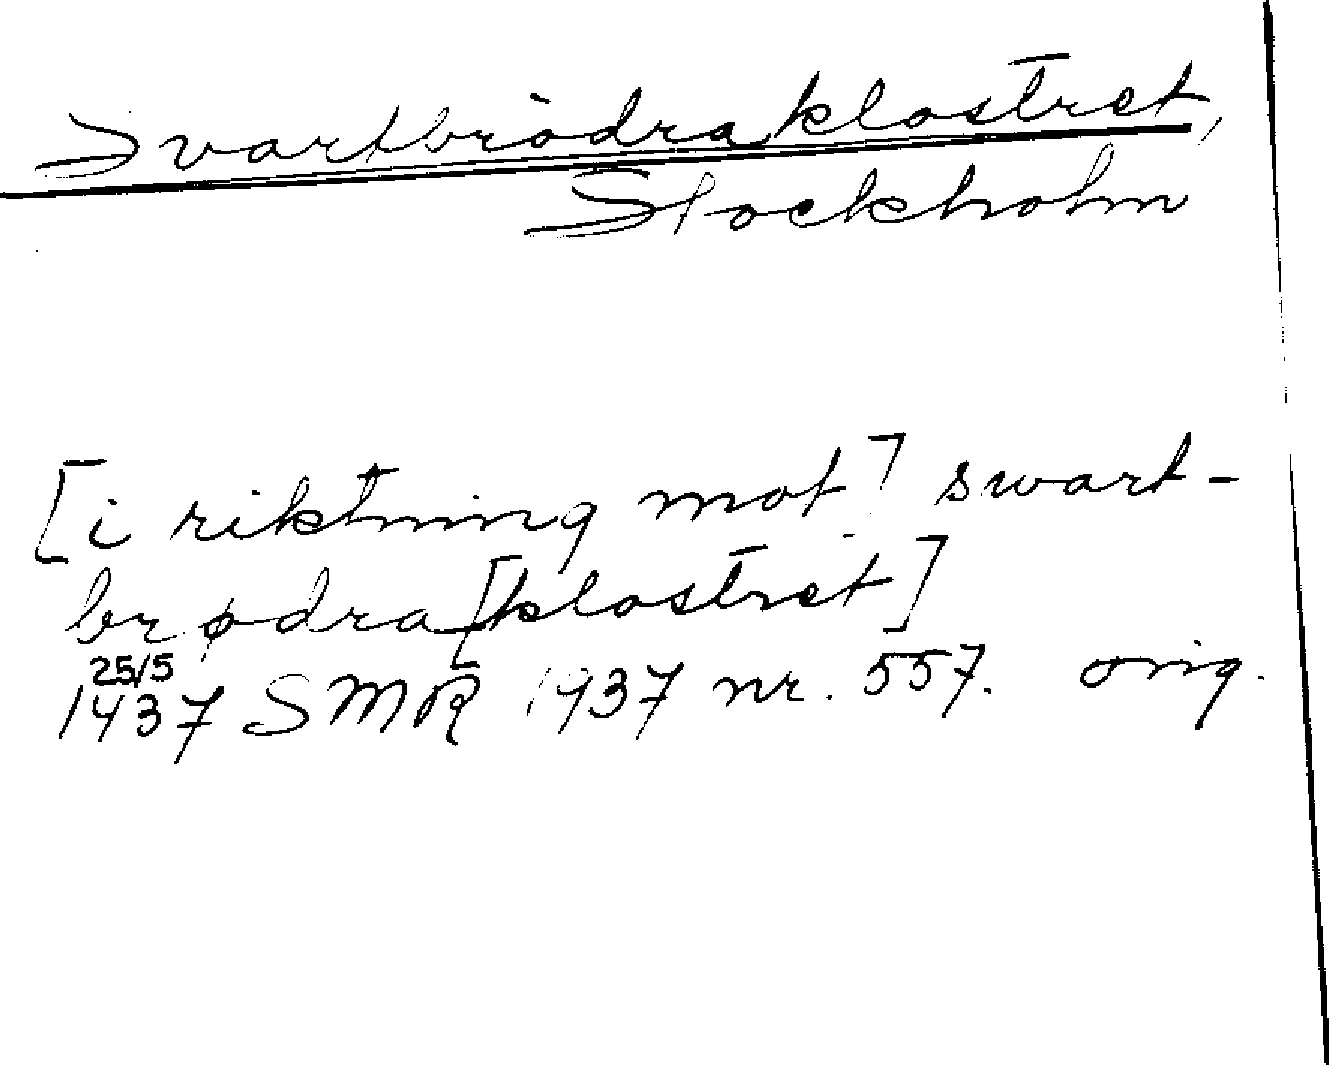 Svartbrödraklostret,
Stockholm
[i riktning mot] swart-
brødra[klostret]
25/5
1437 SMR 1937 nr. 557. orig.